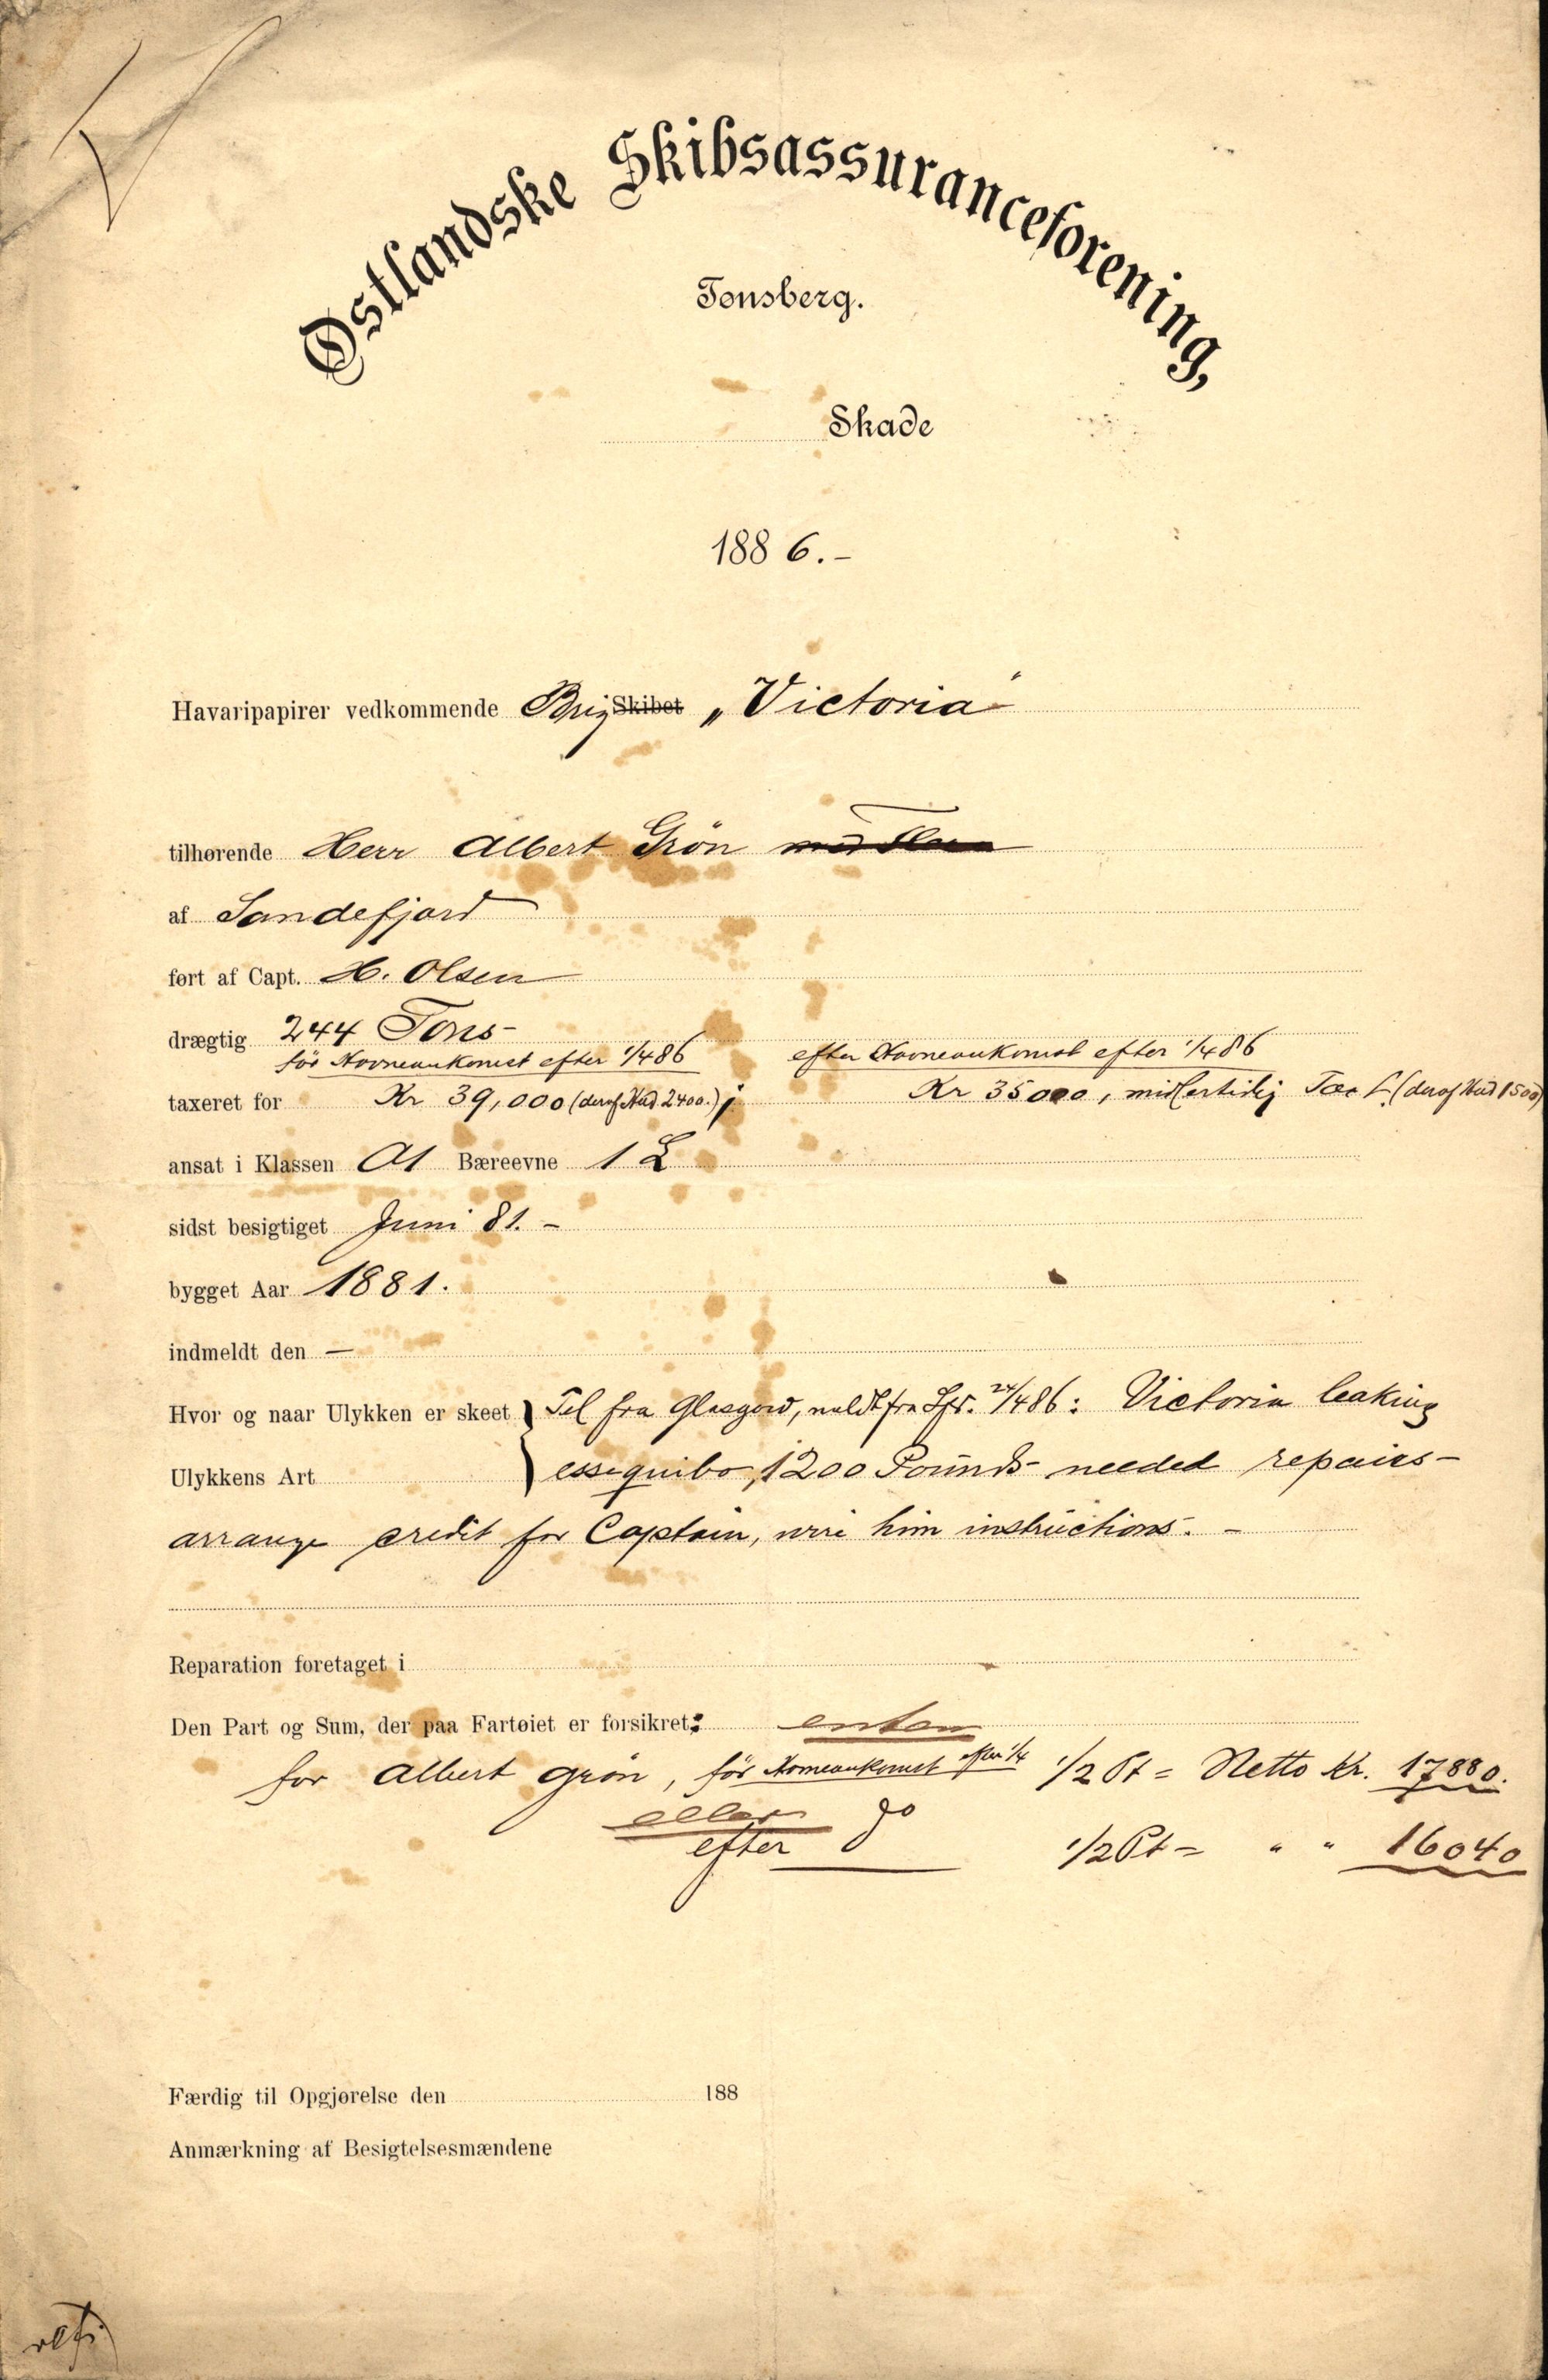 Østlandske Skibsassuranceforening,
Tønsberg.
Skade
1886.-
Havaripapirer vedkommende Brig Skibet „Victoria"
tilhørende Herr Albert Grön
af Sandefjord
ført af Capt. H. Olsen
drægtig 244 Tons
för Havneankomst efter 1/4 86 efter Havneankomst efter 1/4 86
taxeret for Kr 39,000 (deraf Hud 2400.); Kr 35000, midlertidig Tax (deraf Hud 1500)
ansat i Klassen A1 Bæreevne 1 L
sidst besigtiget Juni 81. -
bygget Aar 1881.
indmeldt den —
Hvor og naar Ulykken er skeet } Tel fra Glasgow, meldt fra Sfj. 24/4 86: Victoria leaking
Ulykkens Art } essequibo, 1200 Pounds needed repairs -
arrange credit for Captain, wire him instructions. -
Reparation foretaget i
Den Part og Sum, der paa Fartøiet er forsikret: enten
for Albert Grön, för Havneankomst efter 1/4 1/2 Pt = Netto Kr. 17880.
eller
efter do 1/2 Pt = " " 16040
Færdig til Opgjørelse den 188
Anmærkning af Besigtelsesmændene